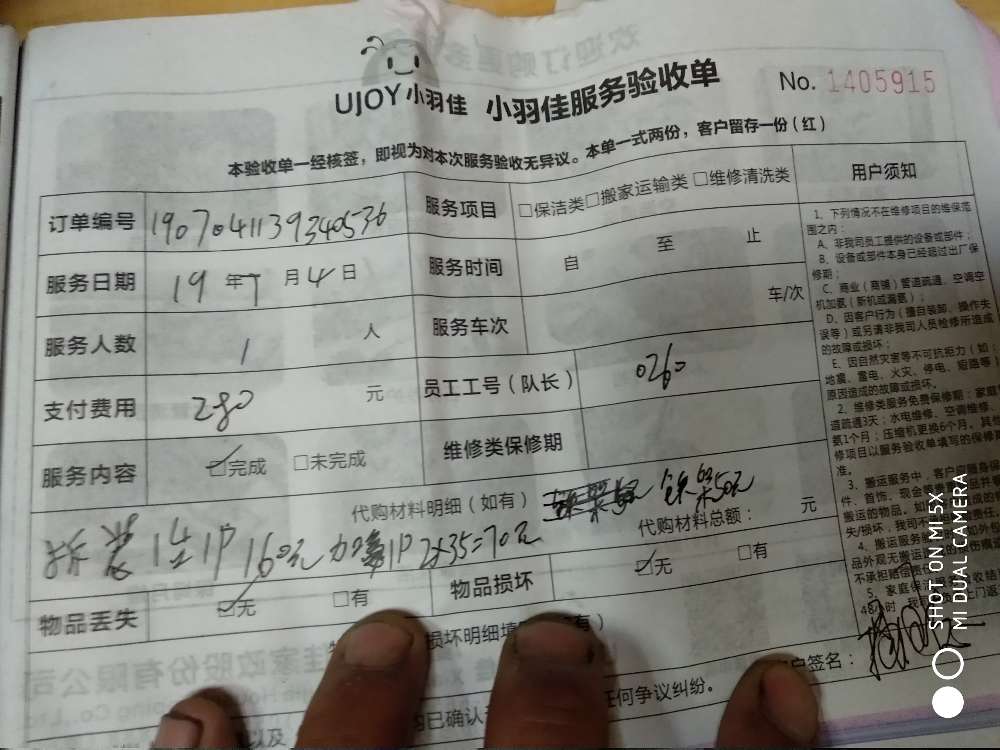 UJOY小羽佳 小羽佳服务验收单 No. 1405915
本验收单一经核签，即视为对本次服务验收无异议。本单一式两份，客户留存一份（红）
订单编号 19070411393405536 服务项目 □保洁类□搬家运输类 □维修清洗类
服务日期 19年7月4日 服务时间 自 至 止
服务人数 1 人 服务车次 车/次
支付费用 280 元 员工工号（队长） 0260
服务内容 ☑完成 □未完成 维修类保修期
代购材料明细（如有） 铁架50元
拆装1台1P 160元 加氟1P 2×35=70元 代购材料总额： 元
物品丢失 ☑无 □有 物品损坏 ☑无 □有
损坏明细填
客户签名：
任何争议纠纷。
用户须知
1、下列情况不在维修项目的维保范
围之内：
A、非我司员工提供的设备或部件；
B、设备或部件本身已经超过出厂保
修期；
C、商业（商铺）管道疏通、空调空
机加氨（新机或漏氨）；
D、因客户行为（擅自装卸、操作失
误等）或另请非我司人员检修所造成
的故障或损坏；
E、因自然灾害等不可抗拒力（如：
地震、雷电、火灾、停电、短路等）
原因造成的故障或损坏。
2、维修类服务免费保修期：家庭
道疏通3天；水电维修、空调维修、
氨1个月；压缩机更换6个月。其他
修项目以服务验收单填写的保修
准。
3、搬运服务中，客户应随身保
件、首饰、现金等贵重
搬运的物品。如
失/损坏，我司
4、搬运服务
品外观无搬运
不承担赔偿责
5、家庭保
48小时
SHOT ON MI 5X
MI DUAL CAMERA